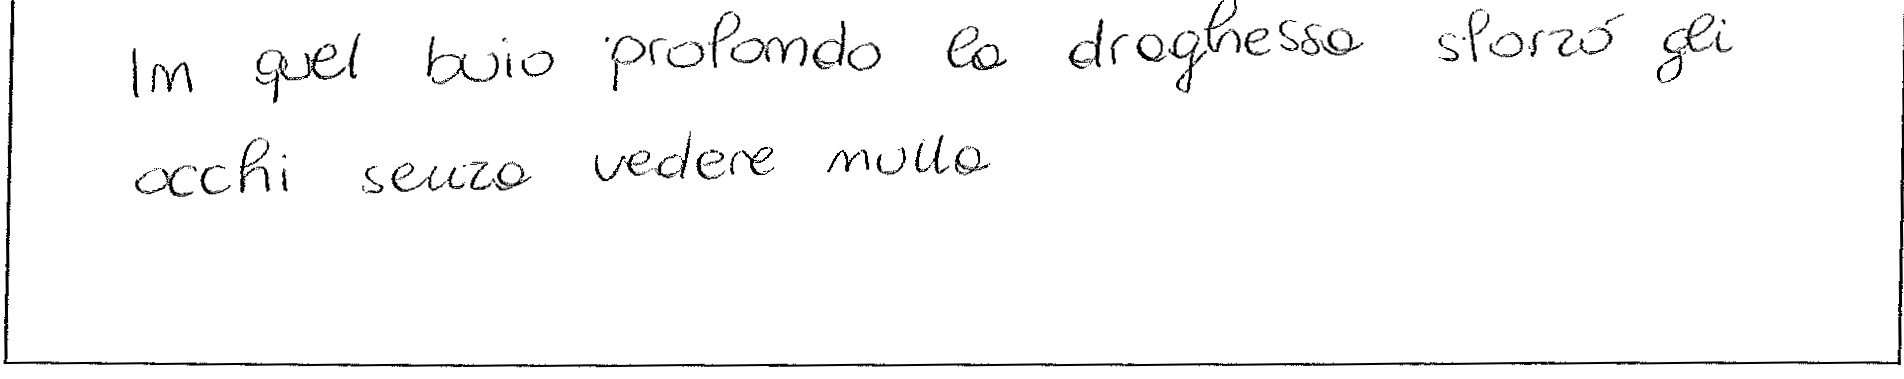 In quel buio profondo la draghessa sforzó gli
occhi senza vedere nulla